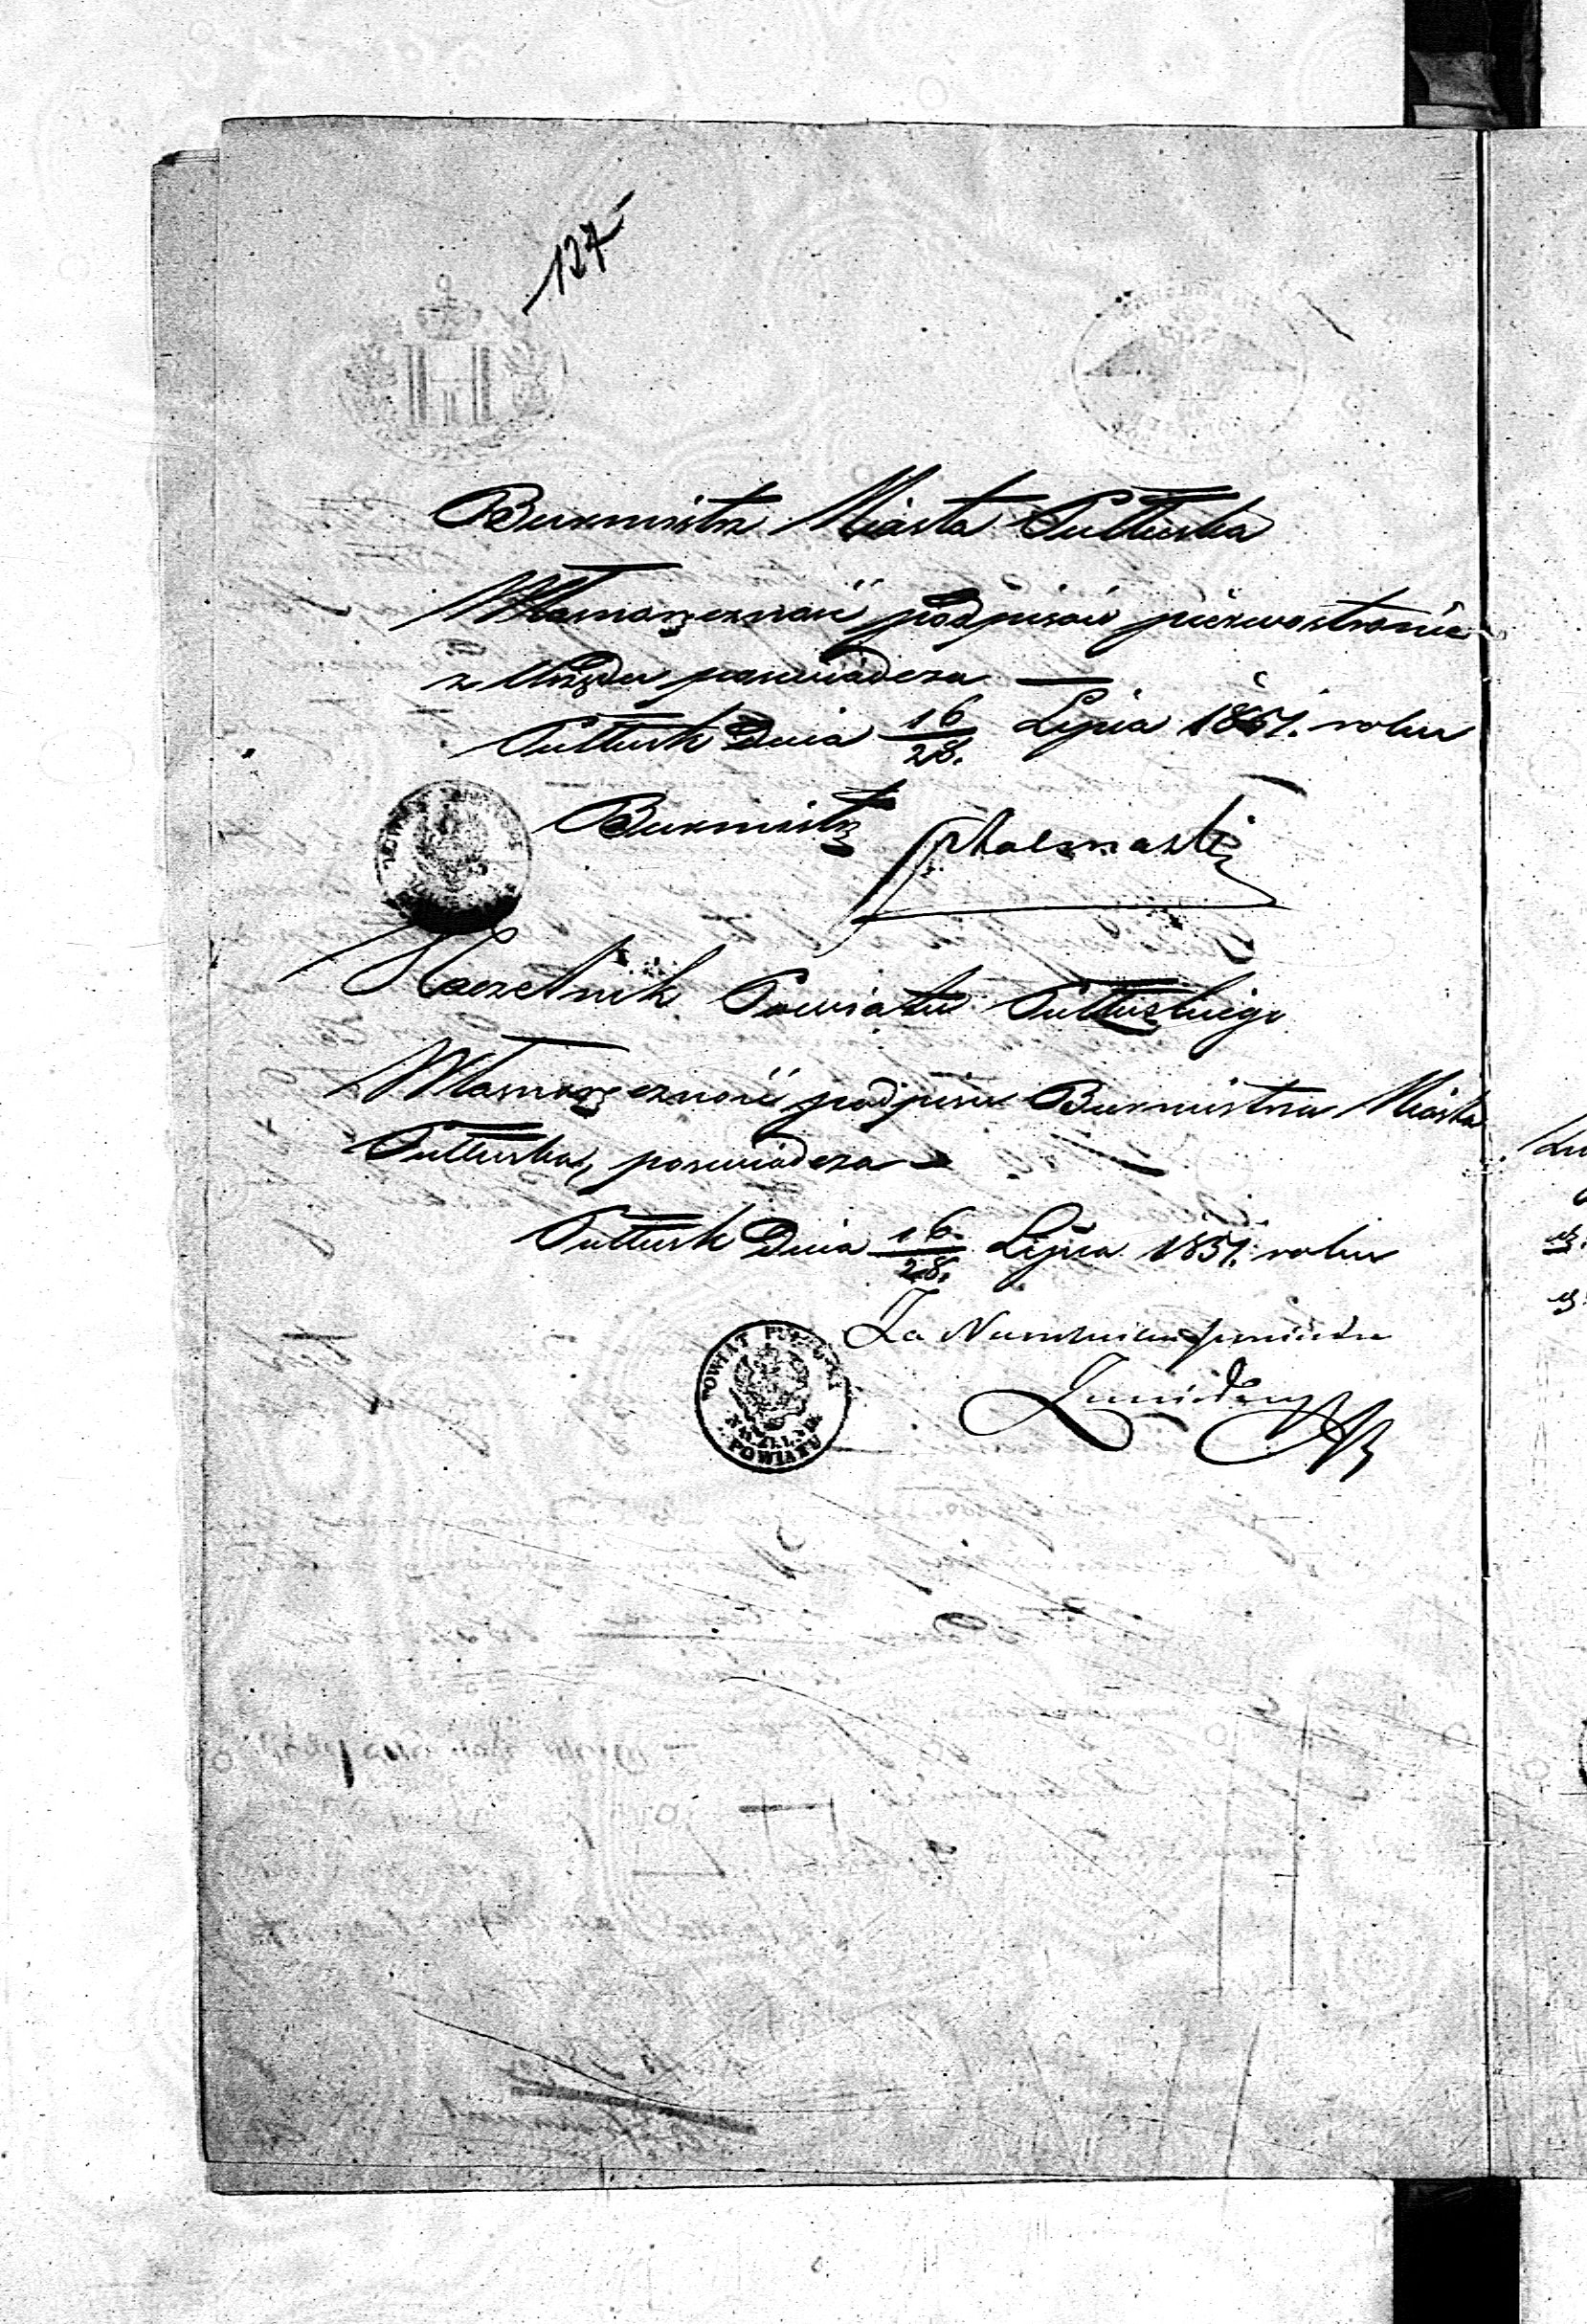 127
Burmistrz Miasta Pułtuska
Własnoręczność podpisów pierwostronie
z Urzędu poswiadcza —
Pułtusk Dnia 16/28. Lipca 1851. roku
Burmistrz
Naczelnik Powiatu Pułtuskiego
Własnoręczność podpisu Burmistrza Miasta
Pułtuska, poswiadcza —
Pułtusk Dnia 16/28. Lipca 1851. roku
Za Naczelnika Powiatu
POWIAT PUŁTUSKI
NACZELNIK
POWIATU